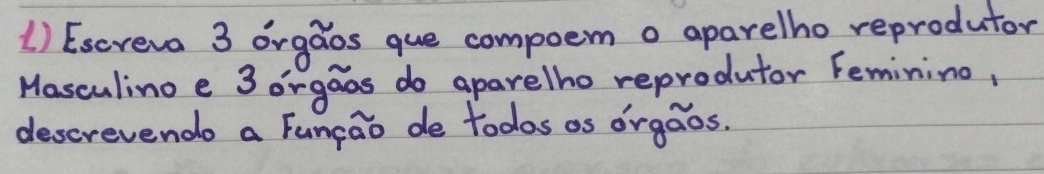 1) Escreva 3 órgãos que compoem o aparelho reprodutor
Masculino e 3 órgãos do aparelho reprodutor Feminino,
descrevendo a Função de todos os órgãos.